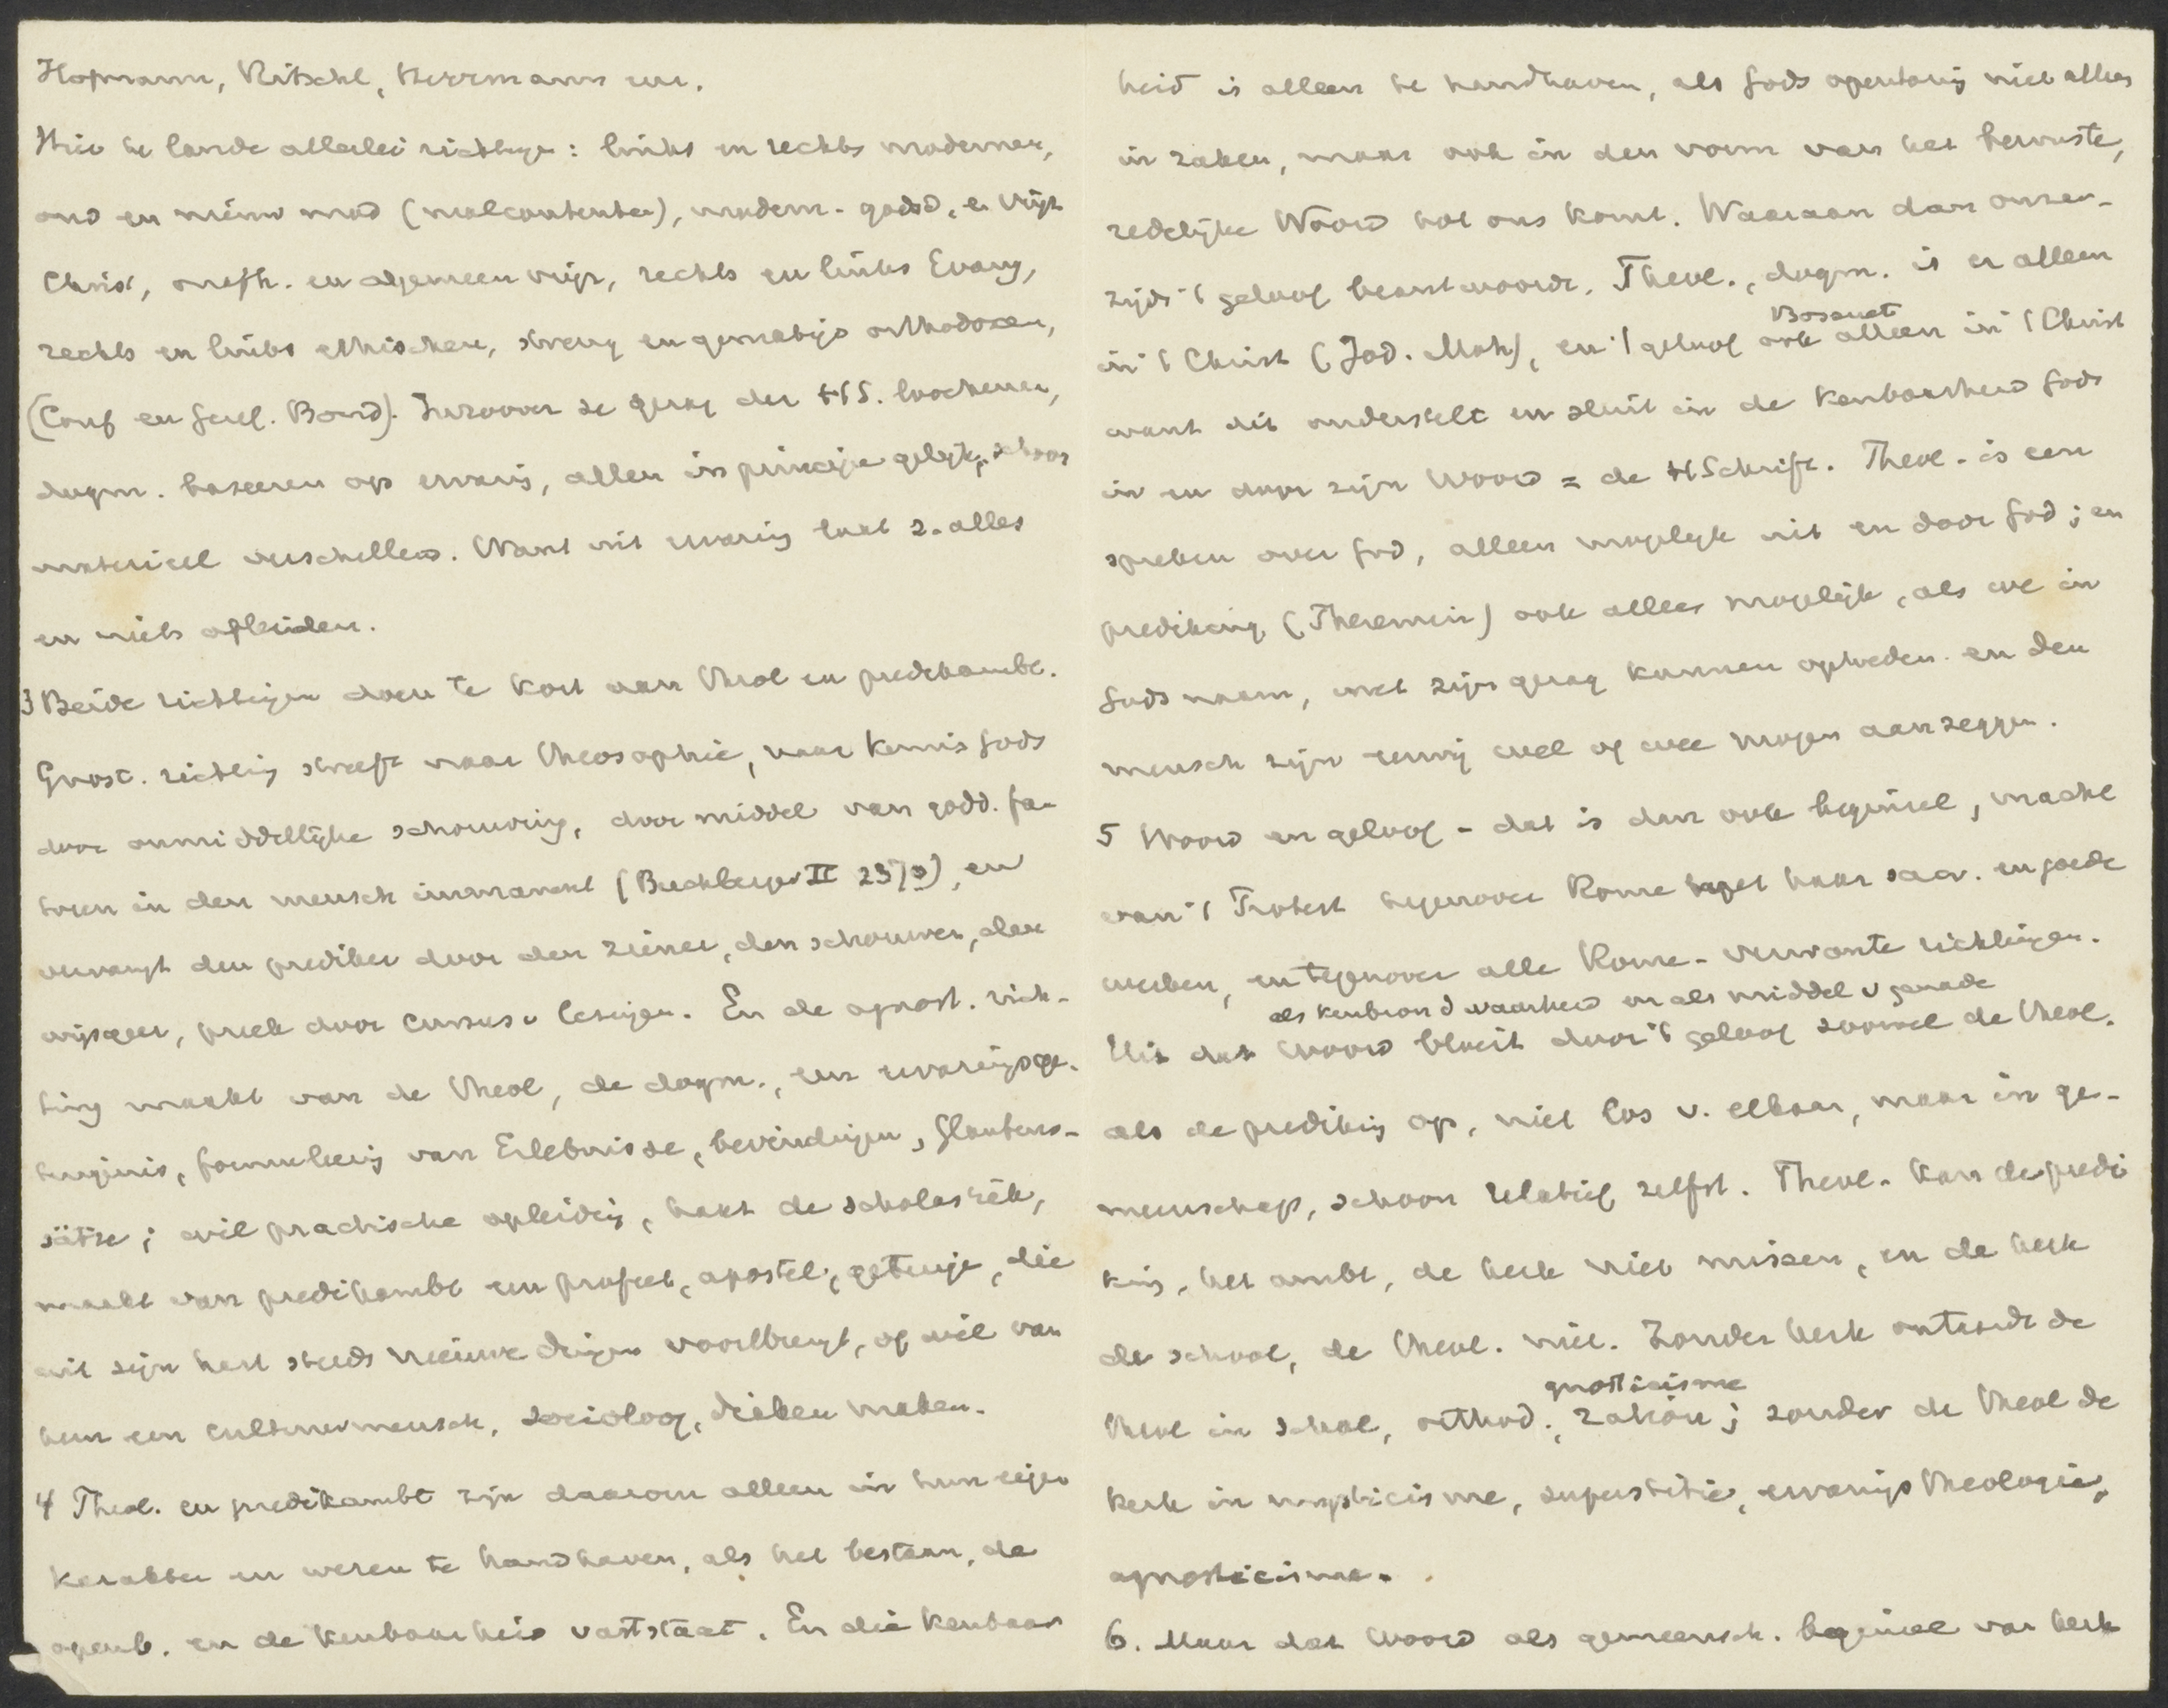 Hofmann, Ritschl, Herrmann enz.
Hier te lande allerlei richtingen: links en rechts modernen,
oud en nieuw mod (malcontenten), modern-godsd. en vrijz
Christ, oneth. en algemeen vrijz, rechts en links Evang,
rechts en links ethischen, streng en gematigd orthodoxen,
(Conf en Geref. Bond). Inzoover ze gezag der H S. loochenen,
dogm. baseeren op ervaring, allen in principe gelijk, schoon
materieel verschillend. Want uit ervaring laat z. alles
en niets afleiden.
3 Beide richtingen doen te kort aan theol en predikambt.
Gnost. richting streeft naar theosophie, naar kennis Gods
door onmiddellijke schouwing, door middel van godd. fa-
toren in den mensch immanent (Buchberger II 2373), en
vervangt den prediker door den ziener, den schouwer, den
wijsgeer, preek door cursus v lezingen. En de agnost. rich-
ting maakt van de theol, de dogm., een ervaringsge-
tuigenis, formuleering van Erlebnisse, bevindingen, Glaubens-
sätze; wil practische opleiding, haat de scholastiek,
maakt van predikambt een profeet, apostel, getuige, die
uit zijn hart steeds nieuwe dingen voortbrengt, of wil van
hem een cultuurmensch, socioloog, maken.
4 Theol. en predikambt zijn daarom alleen in hun eigen
karakter en wezen te handhaven, als het bestaan, de
openb. en de kenbaarheid vaststaat. En die kenbaar
heid is alleen te handhaven, als Gods openbaring niet alleen
in zaken, maar ook in den vorm van het bewuste,
redelijke Woord tot ons komt. Waaraan dan onzer-
zijds 't geloof beantwoordt. Theol., dogm. is er alleen
in 't Christ (Jod. Moh), en 't geloof ook alleen in 't Christ
Bossuet
want dit onderstelt en sluit in de kenbaarheid Gods
in en door zijn Woord = de H Schrift. Theol. is een
spreken over God, alleen mogelijk uit en door God; en
prediking (Theremin) ook alleen mogelijk, als we in
Gods naam, met zijn gezag kunnen optreden en den
mensch zijn eeuwig wel of wee mogen aanzeggen.
5 Woord en geloof - dat is dan ook beginsel, macht
van 't Protest tegenover Rome met haar sacr. en goede
werken, en tegenover alle Rome-verwante richtingen.
als kenbron d waarheid en als middel v genade
Uit dat Woord bloeit door 't geloof zoowel de theol.
als de prediking op, niet los v. elkaar, maar in ge-
meenschap, schoon relatief zelfst. Theol. kan de predi
king, het ambt, de kerk niet missen, en de kerk
de school, de theol. niet. Zonder kerk ontaardt de
gnosticisme
theol in schol, orthod., ration; zonder de theol de
kerk in mysticisme, superstitie, ervaringstheologie,
agnosticisme.
6. Maar dat Woord als gemeensch. beginsel van kerk